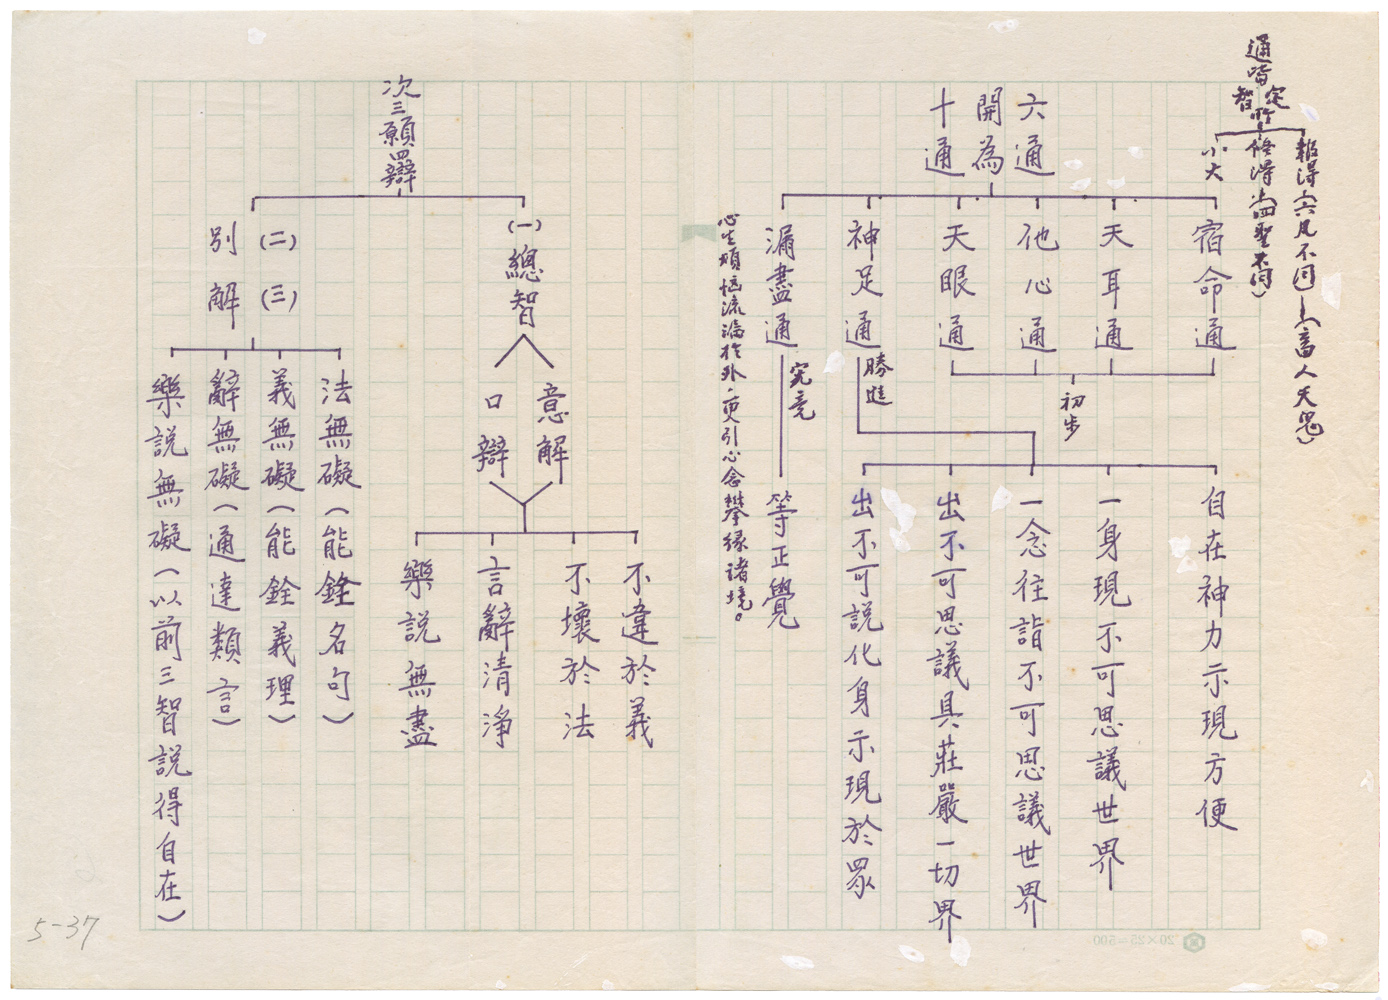 通皆定
智所
報得(六凡不同)(畜人天鬼)
修得(四聖不同)
小大
六通
開為
十通
宿命通
天耳通
他心通
天眼通
神足通
漏盡通
初步
勝進
究竟
自在神力示現方便
一身現不可思議世界
一念往詣不可思議世界
出不可思議具莊嚴一切界
出不可説化身示現於眾
等正覺
心生煩惱流漏於外,更引心念攀緣諸境。
次三願四辯
(一)總智
意解
口辯
不違於義
不壞於法
言辭清淨
樂説無盡
(二)(三)
別解
法無礙(能銓名句)
義無礙(能銓義理)
辭無礙(通達類言)
樂説無礙(以前三智説得自在)
5-37
20×25=500